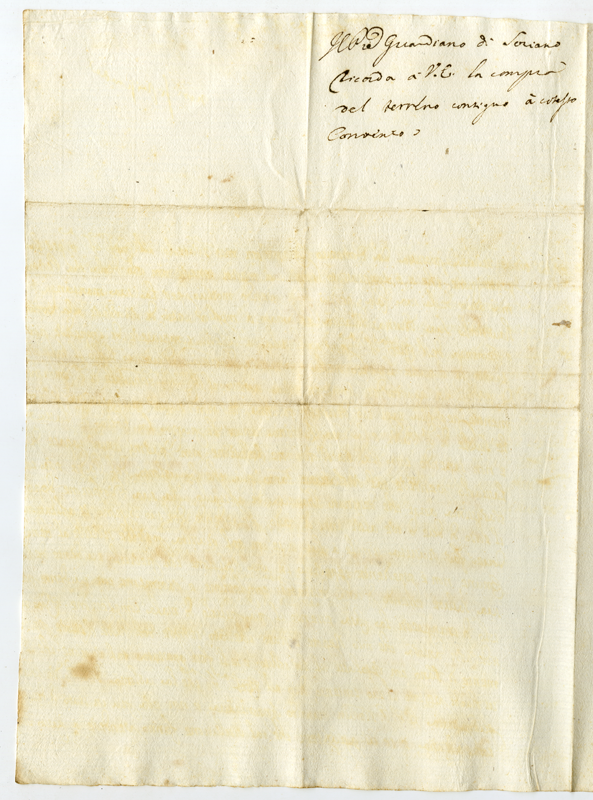 Il Pred Guardiano di Soriano
ricorda à V. E. la compra
del terreno contiguo à cotesto
Convento